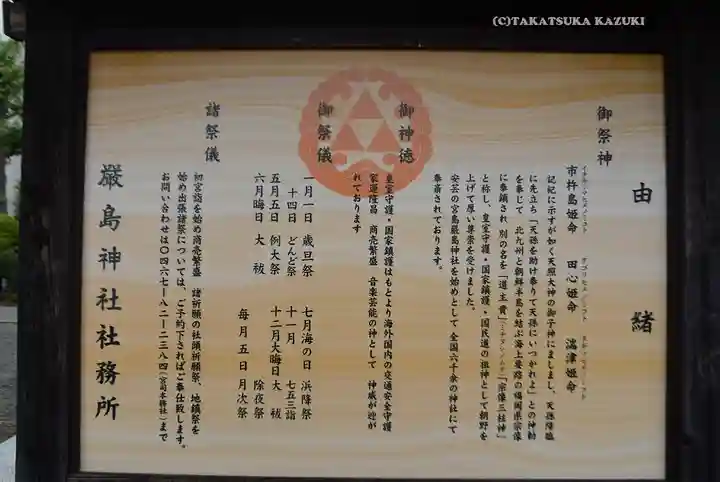 (C)TAKATSUKA KAZUKI
由緒
御祭神
市杵島姫命 田心姫命 湍津姫命
記紀に示すが如く天照大神の御子神にましまし、天孫降臨
に先立ち「天孫を助け奉りて天孫にいつかれよ」との神勅
を奉じて 北九州と朝鮮半島を結ぶ海上要路の福岡県宗像
に奉鎮され 別の名を「道主貴」「宗像三柱神」
と称し、皇室守護・国家鎮護・国民道の祖神として朝野を
上げて厚い尊崇を受けました。
安芸の宮島厳島神社を始めとして全国六千余の神社にて
奉斎されております。
御神徳
皇室守護・国家鎮護はもとより海外国内の交通安全守護
家運隆昌・商売繁盛 音楽芸能の神として 神威が迎が
れております
御祭儀
一月一日 歳旦祭
十四日 どんど祭
五月五日 例大祭
六月晦日 大祓
七月海の日 浜降祭
十一月 七五三詣
十二月大晦日 大祓
除夜祭
毎月五日 月次祭
諸祭儀
初宮詣を始め商売繁盛 諸祈願の社頭祈願祭、地鎮祭を
始め出張諸祭については、ご予約下さればご奉仕致します。
お問い合わせは〇四六七ー八二ー二三八四(宮司本務社)まで
厳島神社社務所